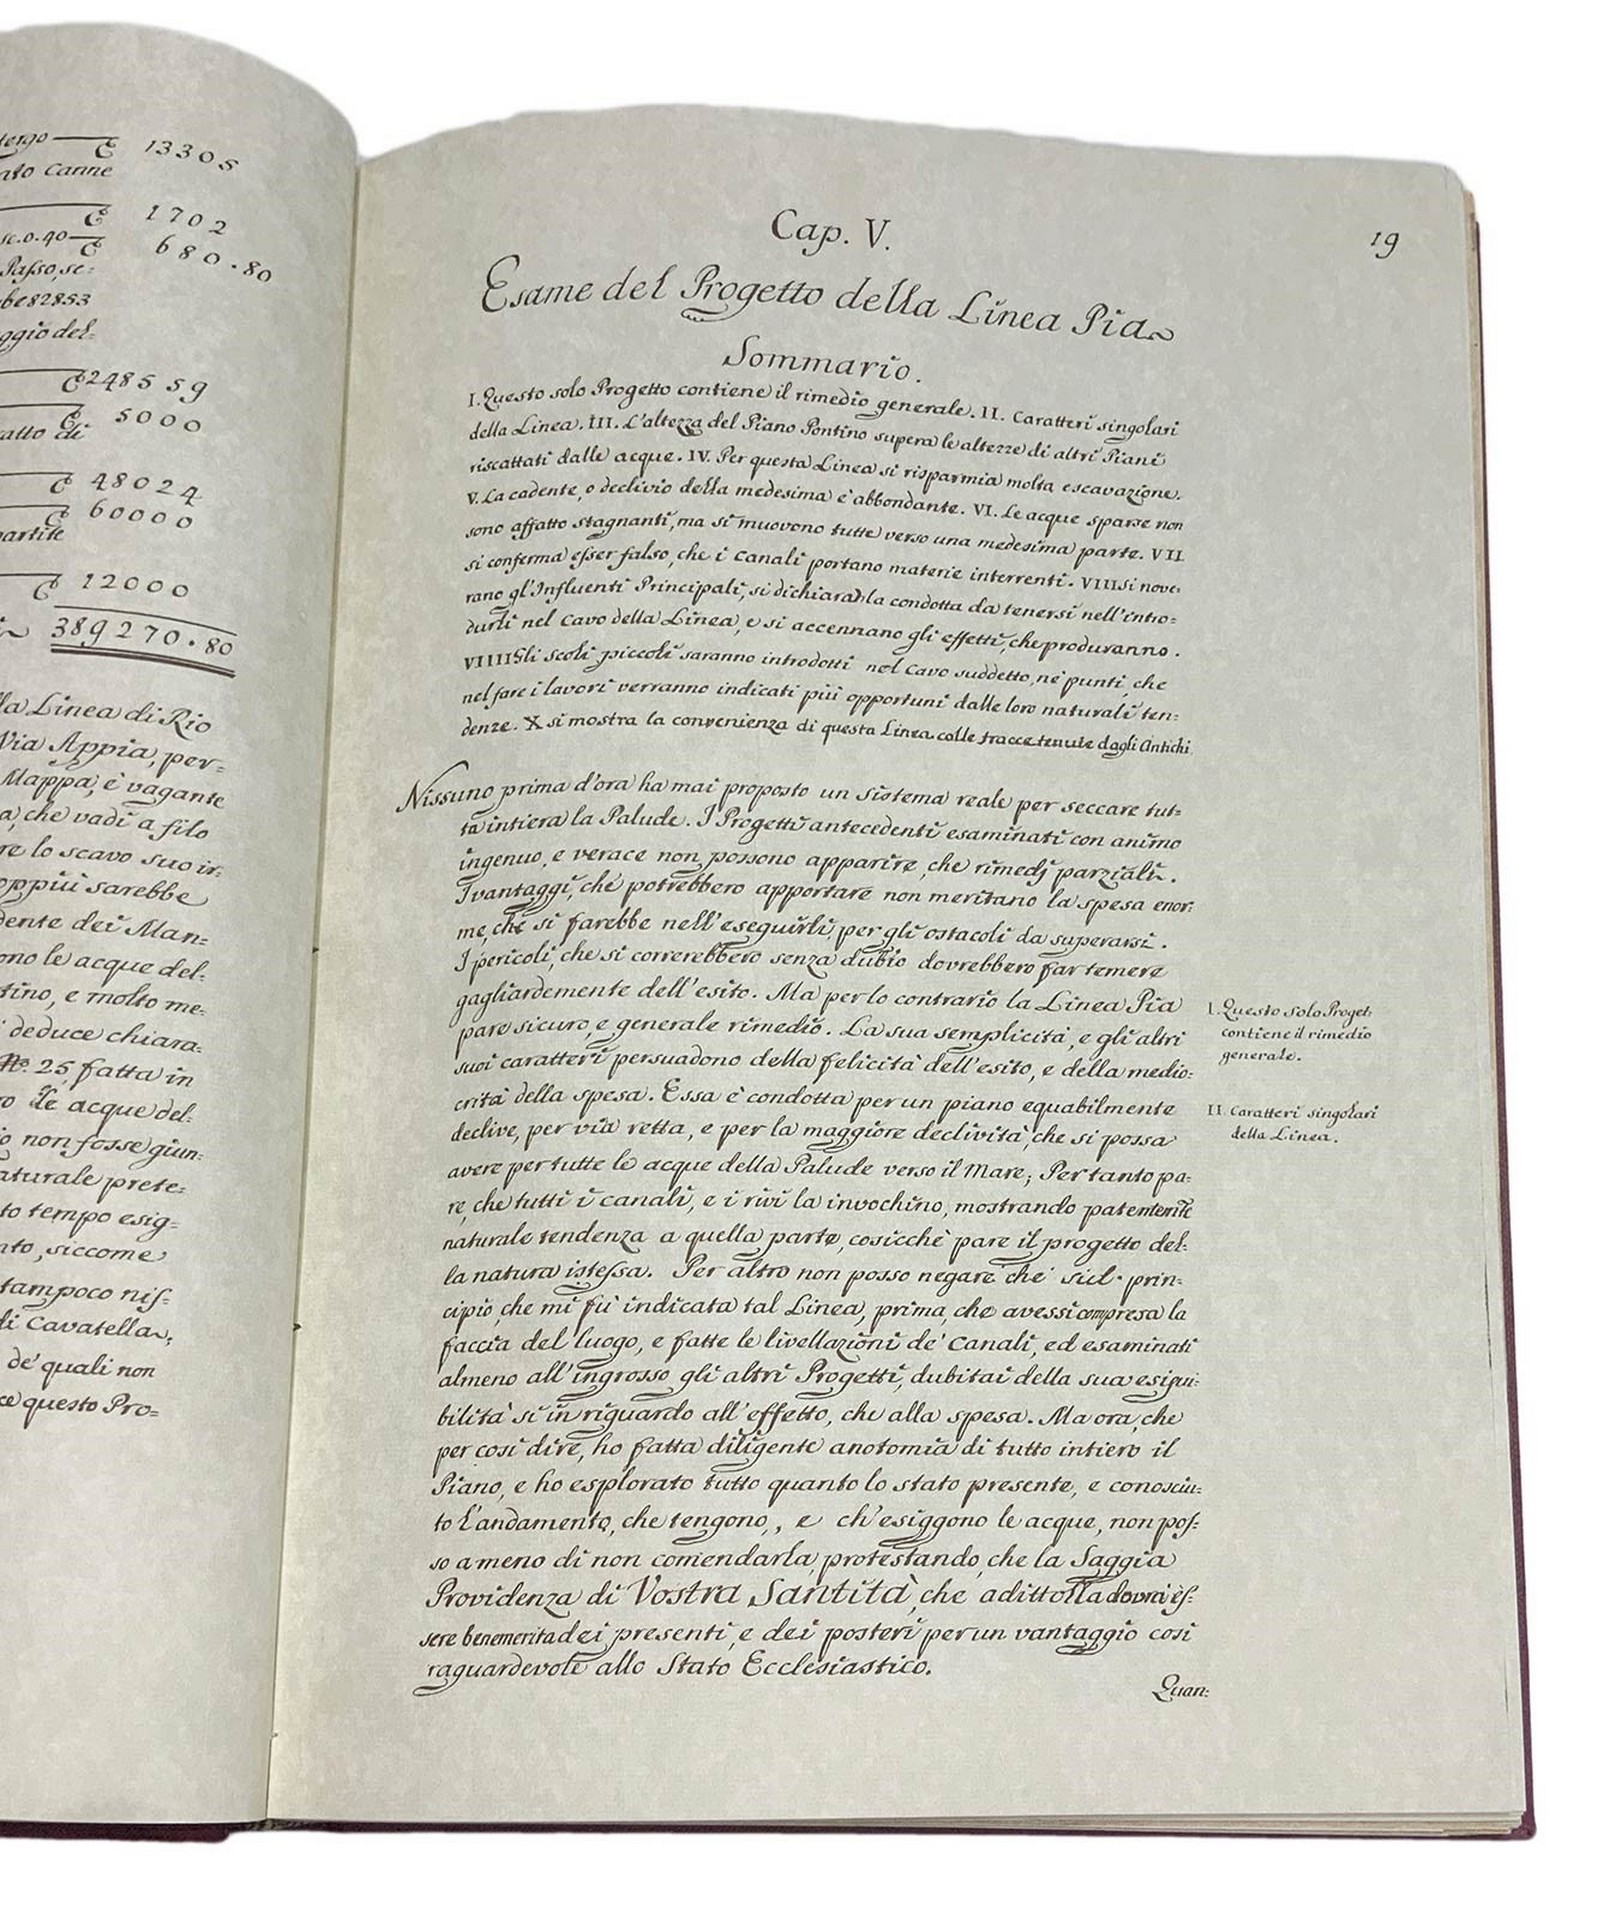 tergo — 13305
ato Canne
1702
sc. 0. 40 — 680.80
Passo, se:
be 82853
ggio del:
2485 59
5000
ratto di
48024
60000
partite
12000
389270.80
la Linea di Rio
Via Appia, per=
Mappa, è vagante
a, che vadi a filo
re lo scavo suo in:
oppiù sarebbe
dente dei Man=
ono le acque del:
tino, e molto me:
deduce chiara:
N.º 25 fatta in
ro le acque del:
io non fosse giun:
aturale prete:
to tempo esig=
nto, siccome
tampoco nis:
di Cavatella;
de' quali non
ce questo Pro=
19
Cap. V.
Esame del Progetto della Linea Pia
Sommario.
I. Questo solo Progetto contiene il rimedio generale. II. Caratteri singolari
della Linea. III. L'altezza del Piano Pontino supera le altezze di altri Piani
riscattati dalle acque. IV. Per questa Linea si risparmia molta escavazione.
V. La cadente, o declivio della medesima è abbondante. VI. Le acque sparse non
sono affatto stagnanti, ma si muovono tutte verso una medesima parte. VII
si conferma esser falso, che i Canali portano materie interrenti. VIII Si nove:
rano gl'Influenti Principali, si dichiara la condotta da tenersi nell'intro=
durli nel Cavo della Linea, e si accennano gli effetti, che produranno.
VIIII Gli Scoli piccoli saranno introdotti nel Cavo suddetto, ne' punti, che
nel fare i lavori verranno indicati più opportuni dalle loro naturali ten:
denze. X si mostra la convenienza di questa Linea colle tracce tenute dagli Antichi
Nissuno prima d'ora ha mai proposto un sistema reale per seccare tut=
ta intiera la Palude. I Progetti antecedenti esaminati con animo
ingenuo, e verace non possono apparire, che rimedj parziali.
I vantaggi, che potrebbero apportare non meritano la spesa enor:
me, che si farebbe nell'eseguirli, per gli ostacoli da superarsi.
I pericoli, che si correrebbero senza dubio dovrebbero far temere
gagliardemente dell'esito. Ma per lo contrario la Linea Pia
pare sicuro, e generale rimedio. La sua semplicità, e gli altri
suoi caratteri persuadono della felicità dell'esito, e della medio:
crità della spesa. Essa è condotta per un piano equabilmente
declive, per via retta, e per la maggiore declività, che si possa
avere per tutte le acque della Palude verso il Mare; Per tanto pa:
re, che tutti i canali, e i rivi la invochino, mostrando patentem̃te
naturale tendenza a quella parte, cosicchè pare il progetto del:
la natura istessa. Per altro non posso negare che sul prin:
cipio, che mi fù indicata tal Linea, prima, che avessi compresa la
faccia del luogo, e fatte le livellazioni de' Canali, ed esaminati
almeno all'ingrosso gli altri Progetti, dubitai della sua esigui:
bilità sì in riguardo all'effetto, che alla spesa. Ma ora, che
per così dire, ho fatta diligente anotomia di tutto intiero il
Piano, e ho esplorato tutto quanto lo stato presente, e conosciu:
to l'andamento, che tengono,, e ch'esiggono le acque, non pos:
so a meno di non comendarla, protestando, che la Saggia
Providenza di Vostra Santità, che adittolla dovrà es:
sere benemerita dei presenti, e dei posteri per un vantaggio così
raguardevole allo Stato Ecclesiastico.
Quan:
I. Questo solo Proget:
contiene il rimedio
generale.
II. Caratteri singolari
della Linea.